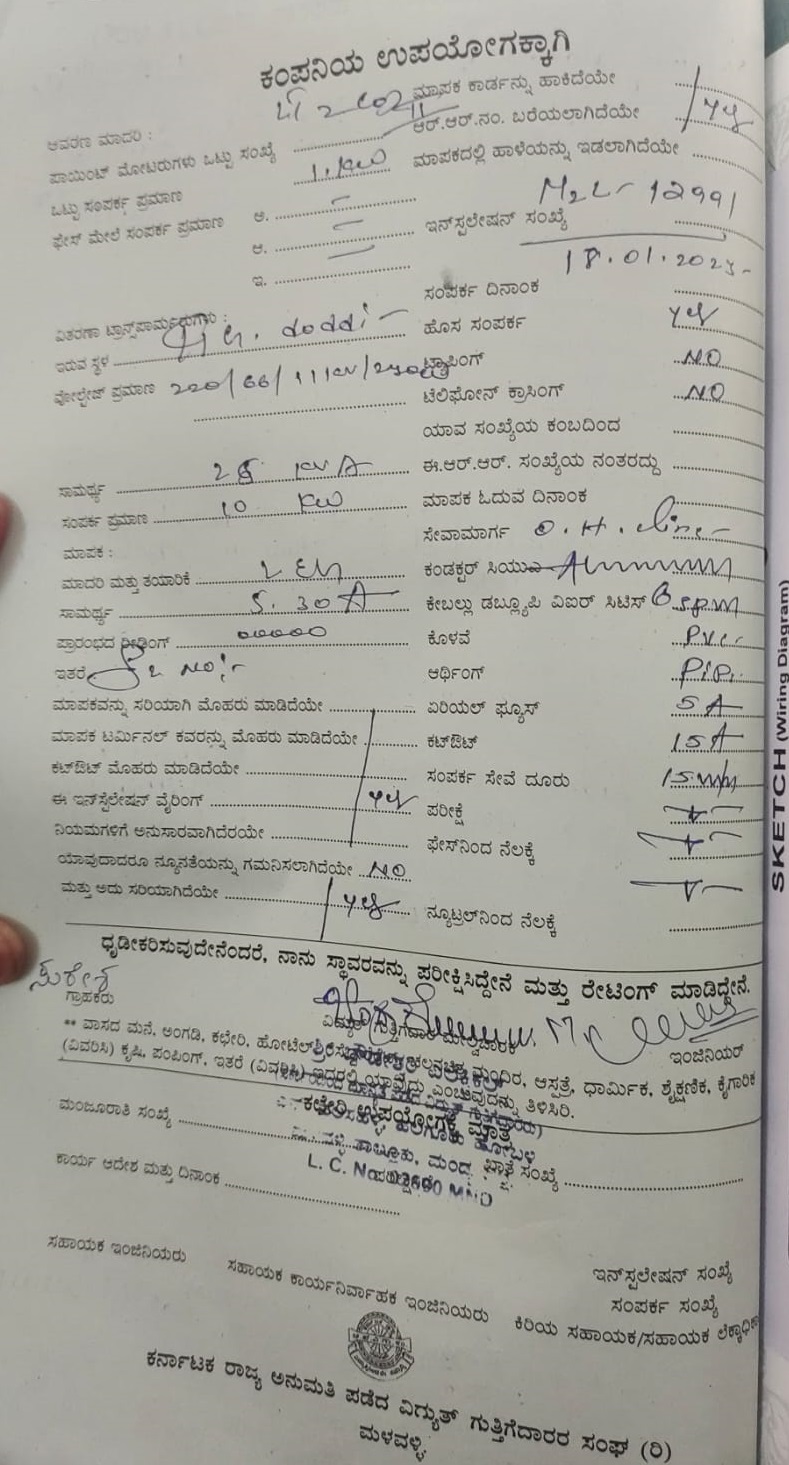 ಕಂಪನಿಯ ಉಪಯೋಗಕ್ಕಾಗಿ
ಮಾಪಕ ಕಾರ್ಡನ್ನು ಹಾಕಿದೆಯೇ
ಆವರಣ ಮಾದರಿ :
ಆರ್.ಆರ್.ನಂ. ಬರೆಯಲಾಗಿದೆಯೇ yes
ಪಾಯಿಂಟ್ ಮೋಟರುಗಳು ಒಟ್ಟು ಸಂಖ್ಯೆ
ಮಾಪಕದಲ್ಲಿ ಹಾಳೆಯನ್ನು ಇಡಲಾಗಿದೆಯೇ
ಒಟ್ಟು ಸಂಪರ್ಕ ಪ್ರಮಾಣ 1. KW
ಫೇಸ್ ಮೇಲೆ ಸಂಪರ್ಕ ಪ್ರಮಾಣ ಅ.
ಆ.
ಇ.
ಇನ್‌ಸ್ಪಲೇಷನ್ ಸಂಖ್ಯೆ M2L-12991
ಸಂಪರ್ಕ ದಿನಾಂಕ 18.01.2023
ವಿತರಣಾ ಟ್ರಾನ್ಸ್‌ಪಾರ್ಮರುಗಳು :
ಹೊಸ ಸಂಪರ್ಕ yes
ಇರುವ ಸ್ಥಳ doddi
ಟ್ಯಾಪಿಂಗ್ NO
ವೋಲ್ಟೇಜ್ ಪ್ರಮಾಣ 220/66/11KV/
ಟೆಲಿಫೋನ್ ಕ್ರಾಸಿಂಗ್ NO
ಯಾವ ಸಂಖ್ಯೆಯ ಕಂಬದಿಂದ
ಸಾಮರ್ಥ್ಯ 25 KVA
ಈ.ಆರ್.ಆರ್. ಸಂಖ್ಯೆಯ ನಂತರದ್ದು
ಸಂಪರ್ಕ ಪ್ರಮಾಣ 10 KW
ಮಾಪಕ ಓದುವ ದಿನಾಂಕ
ಮಾಪಕ :
ಸೇವಾಮಾರ್ಗ O.H. Line
ಮಾದರಿ ಮತ್ತು ತಯಾರಿಕೆ
ಕಂಡಕ್ಟರ್ ಸಿಯು
ಸಾಮರ್ಥ್ಯ 5.30A
ಕೇಬಲ್ಲು ಡಬ್ಲ್ಯೂಪಿ ವಿಐರ್ ಸಿಟಿಸ್
ಪ್ರಾರಂಭದ ರೀಡಿಂಗ್ 00000
ಕೊಳವೆ P.V.C
ಇತರೆ NO:-
ಆರ್ಥಿಂಗ್ PIP.
ಮಾಪಕವನ್ನು ಸರಿಯಾಗಿ ಮೊಹರು ಮಾಡಿದೆಯೇ
ಏರಿಯಲ್ ಫ್ಯೂಸ್ 5A
ಮಾಪಕ ಟರ್ಮಿನಲ್ ಕವರನ್ನು ಮೊಹರು ಮಾಡಿದೆಯೇ
ಕಟ್‌ಔಟ್ 15A
ಕಟ್‌ಔಟ್ ಮೊಹರು ಮಾಡಿದೆಯೇ
ಸಂಪರ್ಕ ಸೇವೆ ದೂರು 15
ಈ ಇನ್‌ಸ್ಟಲೇಷನ್ ವೈರಿಂಗ್ yes
ಪರೀಕ್ಷೆ
ನಿಯಮಗಳಿಗೆ ಅನುಸಾರವಾಗಿದೆರಯೇ
ಫೇಸ್‌ನಿಂದ ನೆಲಕ್ಕೆ
ಯಾವುದಾದರೂ ನ್ಯೂನತೆಯನ್ನು ಗಮನಿಸಲಾಗಿದೆಯೇ NO
ಮತ್ತು ಅದು ಸರಿಯಾಗಿದೆಯೇ yes
ನ್ಯೂಟ್ರಲ್‌ನಿಂದ ನೆಲಕ್ಕೆ
ಧೃಡೀಕರಿಸುವುದೇನೆಂದರೆ, ನಾನು ಸ್ಥಾವರವನ್ನು ಪರೀಕ್ಷಿಸಿದ್ದೇನೆ ಮತ್ತು ರೇಟಿಂಗ್ ಮಾಡಿದ್ದೇನೆ.
ಸುರೇಶ
ಗ್ರಾಹಕರು
ಇಂಜಿನಿಯರ್
** ವಾಸದ ಮನೆ, ಅಂಗಡಿ, ಕಛೇರಿ, ಹೋಟೆಲ್ ಮಂದಿರ, ಆಸ್ಪತ್ರೆ, ಧಾರ್ಮಿಕ, ಶೈಕ್ಷಣಿಕ, ಕೈಗಾರಿಕ
(ವಿವರಿಸಿ) ಕೃಷಿ, ಪಂಪಿಂಗ್, ಇತರೆ (ವಿವರಿಸಿ) ಇದರಲ್ಲಿ ಯಾವುದು ಎಂಬುವುದನ್ನು ತಿಳಿಸಿರಿ.
ಕಛೇರಿ ಉಪಯೋಗಕ್ಕೆ ಮಾತ್ರ
ಮಂಜೂರಾತಿ ಸಂಖ್ಯೆ
ಸಂಖ್ಯೆ
ಕಾರ್ಯ ಆದೇಶ ಮತ್ತು ದಿನಾಂಕ
L. C. No. MND
ಸಹಾಯಕ ಇಂಜಿನಿಯರು
ಸಹಾಯಕ ಕಾರ್ಯನಿರ್ವಾಹಕ ಇಂಜಿನಿಯರು
ಇನ್‌ಸ್ಪಲೇಷನ್ ಸಂಖ್ಯೆ
ಸಂಪರ್ಕ ಸಂಖ್ಯೆ
ಕಿರಿಯ ಸಹಾಯಕ/ಸಹಾಯಕ
ಕರ್ನಾಟಕ ರಾಜ್ಯ ಅನುಮತಿ ಪಡೆದ ವಿದ್ಯುತ್ ಗುತ್ತಿಗೆದಾರರ ಸಂಘ (ರಿ)
ಮಳವಳ್ಳಿ
SKETCH (Wiring Diagram)